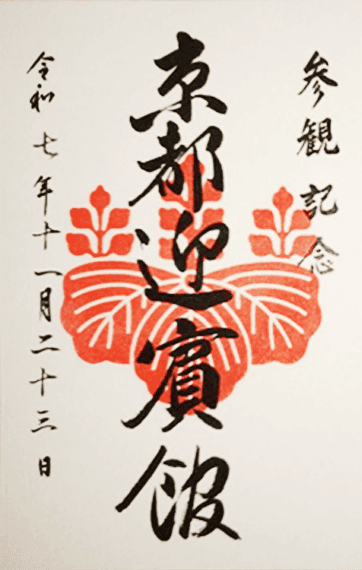 参観記念
京都迎賓館
令和七年十一月二十三日